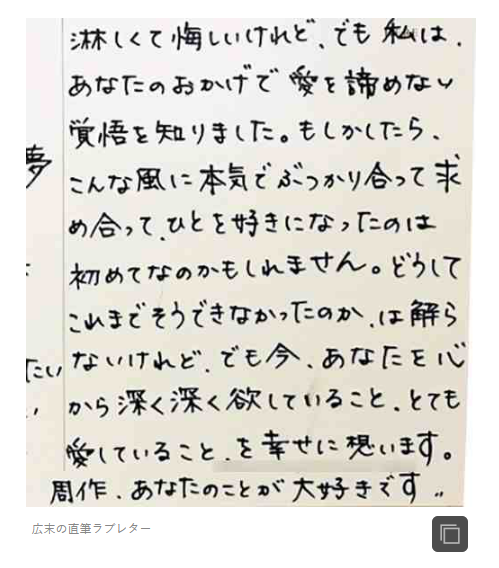 淋しくて悔しいけれど、でも私は、
あなたのおかげで愛を諦めない
覚悟を知りました。もしかしたら、
こんな風に本気でぶつかり合って求
め合って、ひとを好きになったのは
初めてなのかもしれません。どうして
これまでそうできなかったのか、は解ら
ないけれど、でも今、あなたを心
から深く深く欲していること、とても
愛していること、を幸せに想います。
周作、あなたのことが大好きです。
夢
たい
広末の直筆ラブレター